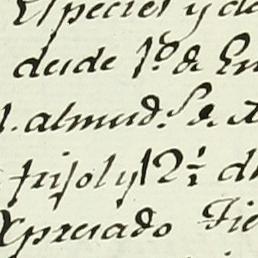 Especies y de
desde 1.º de En
l. almud.s de A
frisol y 2½ d
Xpresado Fie